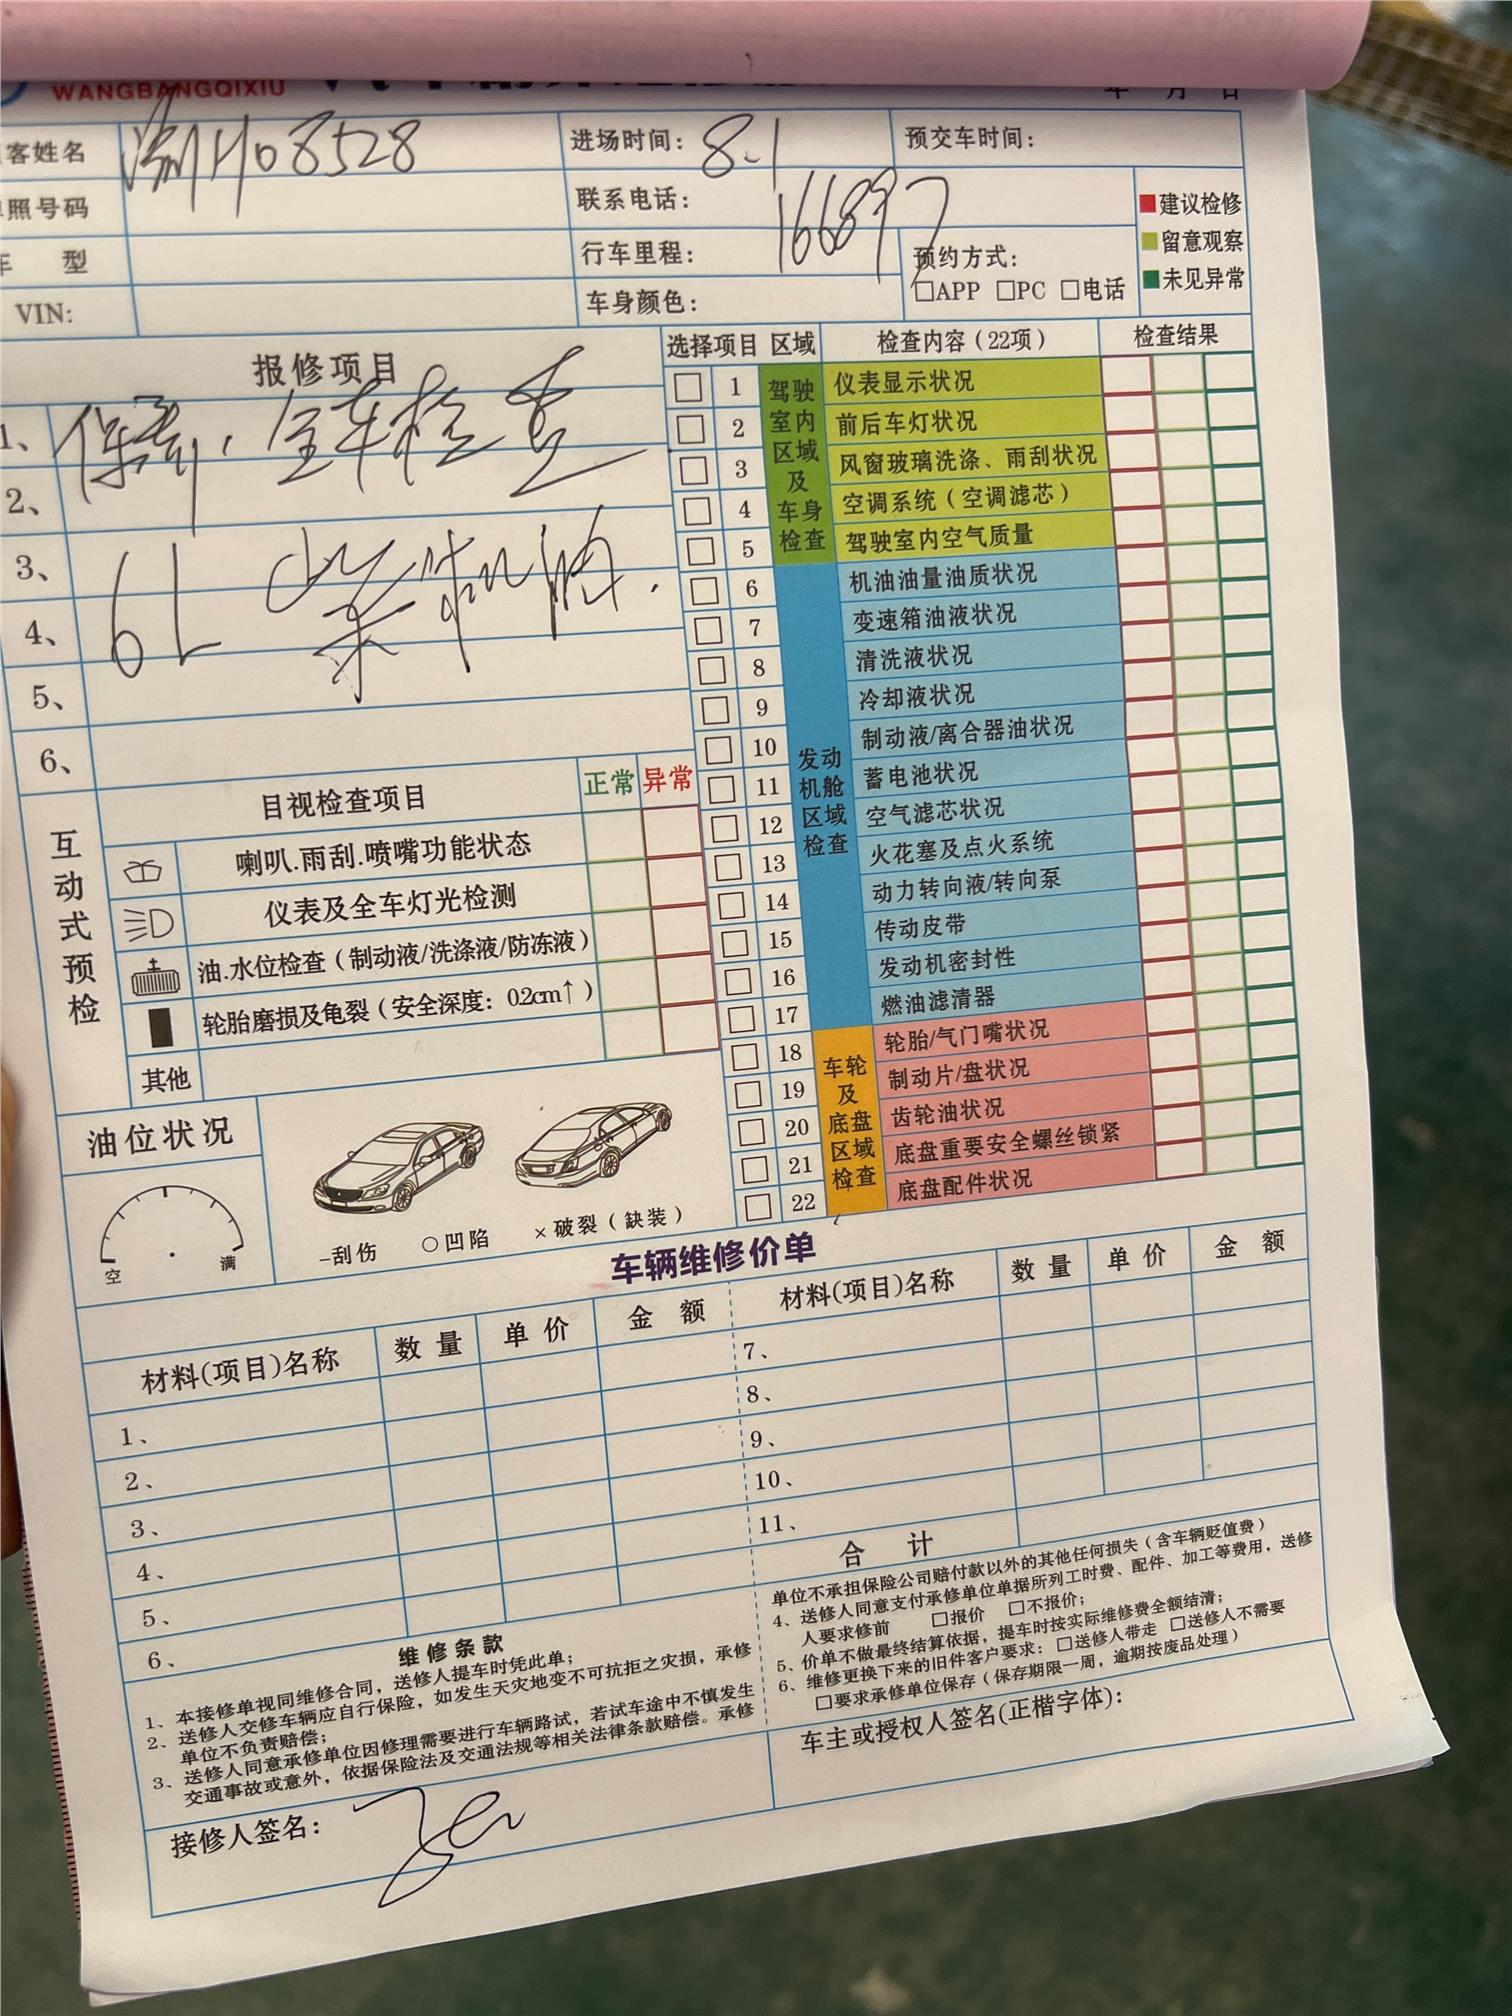 WANGBANGQIXIU
年 月 日
客姓名 渝H08528 进场时间: 8.1 预交车时间:
照号码 联系电话:
车 型 行车里程: 166897 预约方式:
□APP □PC □电话
VIN: 车身颜色:
建议检修
留意观察
未见异常
报修项目
1、 保养、全车检查
2、
3、 6L 柴机油.
4、
5、
6、
选择项目 区域 检查内容(22项) 检查结果
驾驶室内区域及车身检查
1 仪表显示状况
2 前后车灯状况
3 风窗玻璃洗涤、雨刮状况
4 空调系统(空调滤芯)
5 驾驶室内空气质量
发动机舱区域检查
6 机油油量油质状况
7 变速箱油液状况
8 清洗液状况
9 冷却液状况
10 制动液/离合器油状况
11 蓄电池状况
12 空气滤芯状况
13 火花塞及点火系统
14 动力转向液/转向泵
15 传动皮带
16 发动机密封性
17 燃油滤清器
车轮及底盘区域检查
18 轮胎/气门嘴状况
19 制动片/盘状况
20 齿轮油状况
21 底盘重要安全螺丝锁紧
22 底盘配件状况
互动式预检
目视检查项目 正常 异常
喇叭.雨刮.喷嘴功能状态
仪表及全车灯光检测
油.水位检查(制动液/洗涤液/防冻液)
轮胎磨损及龟裂(安全深度: 0.2cm↑)
其他
油位状况
空 满
-刮伤 ○凹陷 ×破裂(缺装)
车辆维修价单
材料(项目)名称 数量 单价 金额
1、
2、
3、
4、
5、
6、
材料(项目)名称 数量 单价 金额
7、
8、
9、
10、
11、
合 计
维修条款
1、本接修单视同维修合同，送修人提车时凭此单；
2、送修人交修车辆应自行保险，如发生天灾地变不可抗拒之灾损，承修
单位不负责赔偿；
3、送修人同意承修单位因修理需要进行车辆路试，若试车途中不慎发生
交通事故或意外，依据保险法及交通法规等相关法律条款赔偿。承修
单位不承担保险公司赔付款以外的其他任何损失(含车辆贬值费)
4、送修人同意支付承修单位单据所列工时费、配件、加工等费用，送修
人要求修前 □报价 □不报价；
5、价单不做最终结算依据，提车时按实际维修费全额结清；
6、维修更换下来的旧件客户要求：□送修人带走 □送修人不需要
□要求承修单位保存(保存期限一周，逾期按废品处理)
接修人签名:
车主或授权人签名(正楷字体):